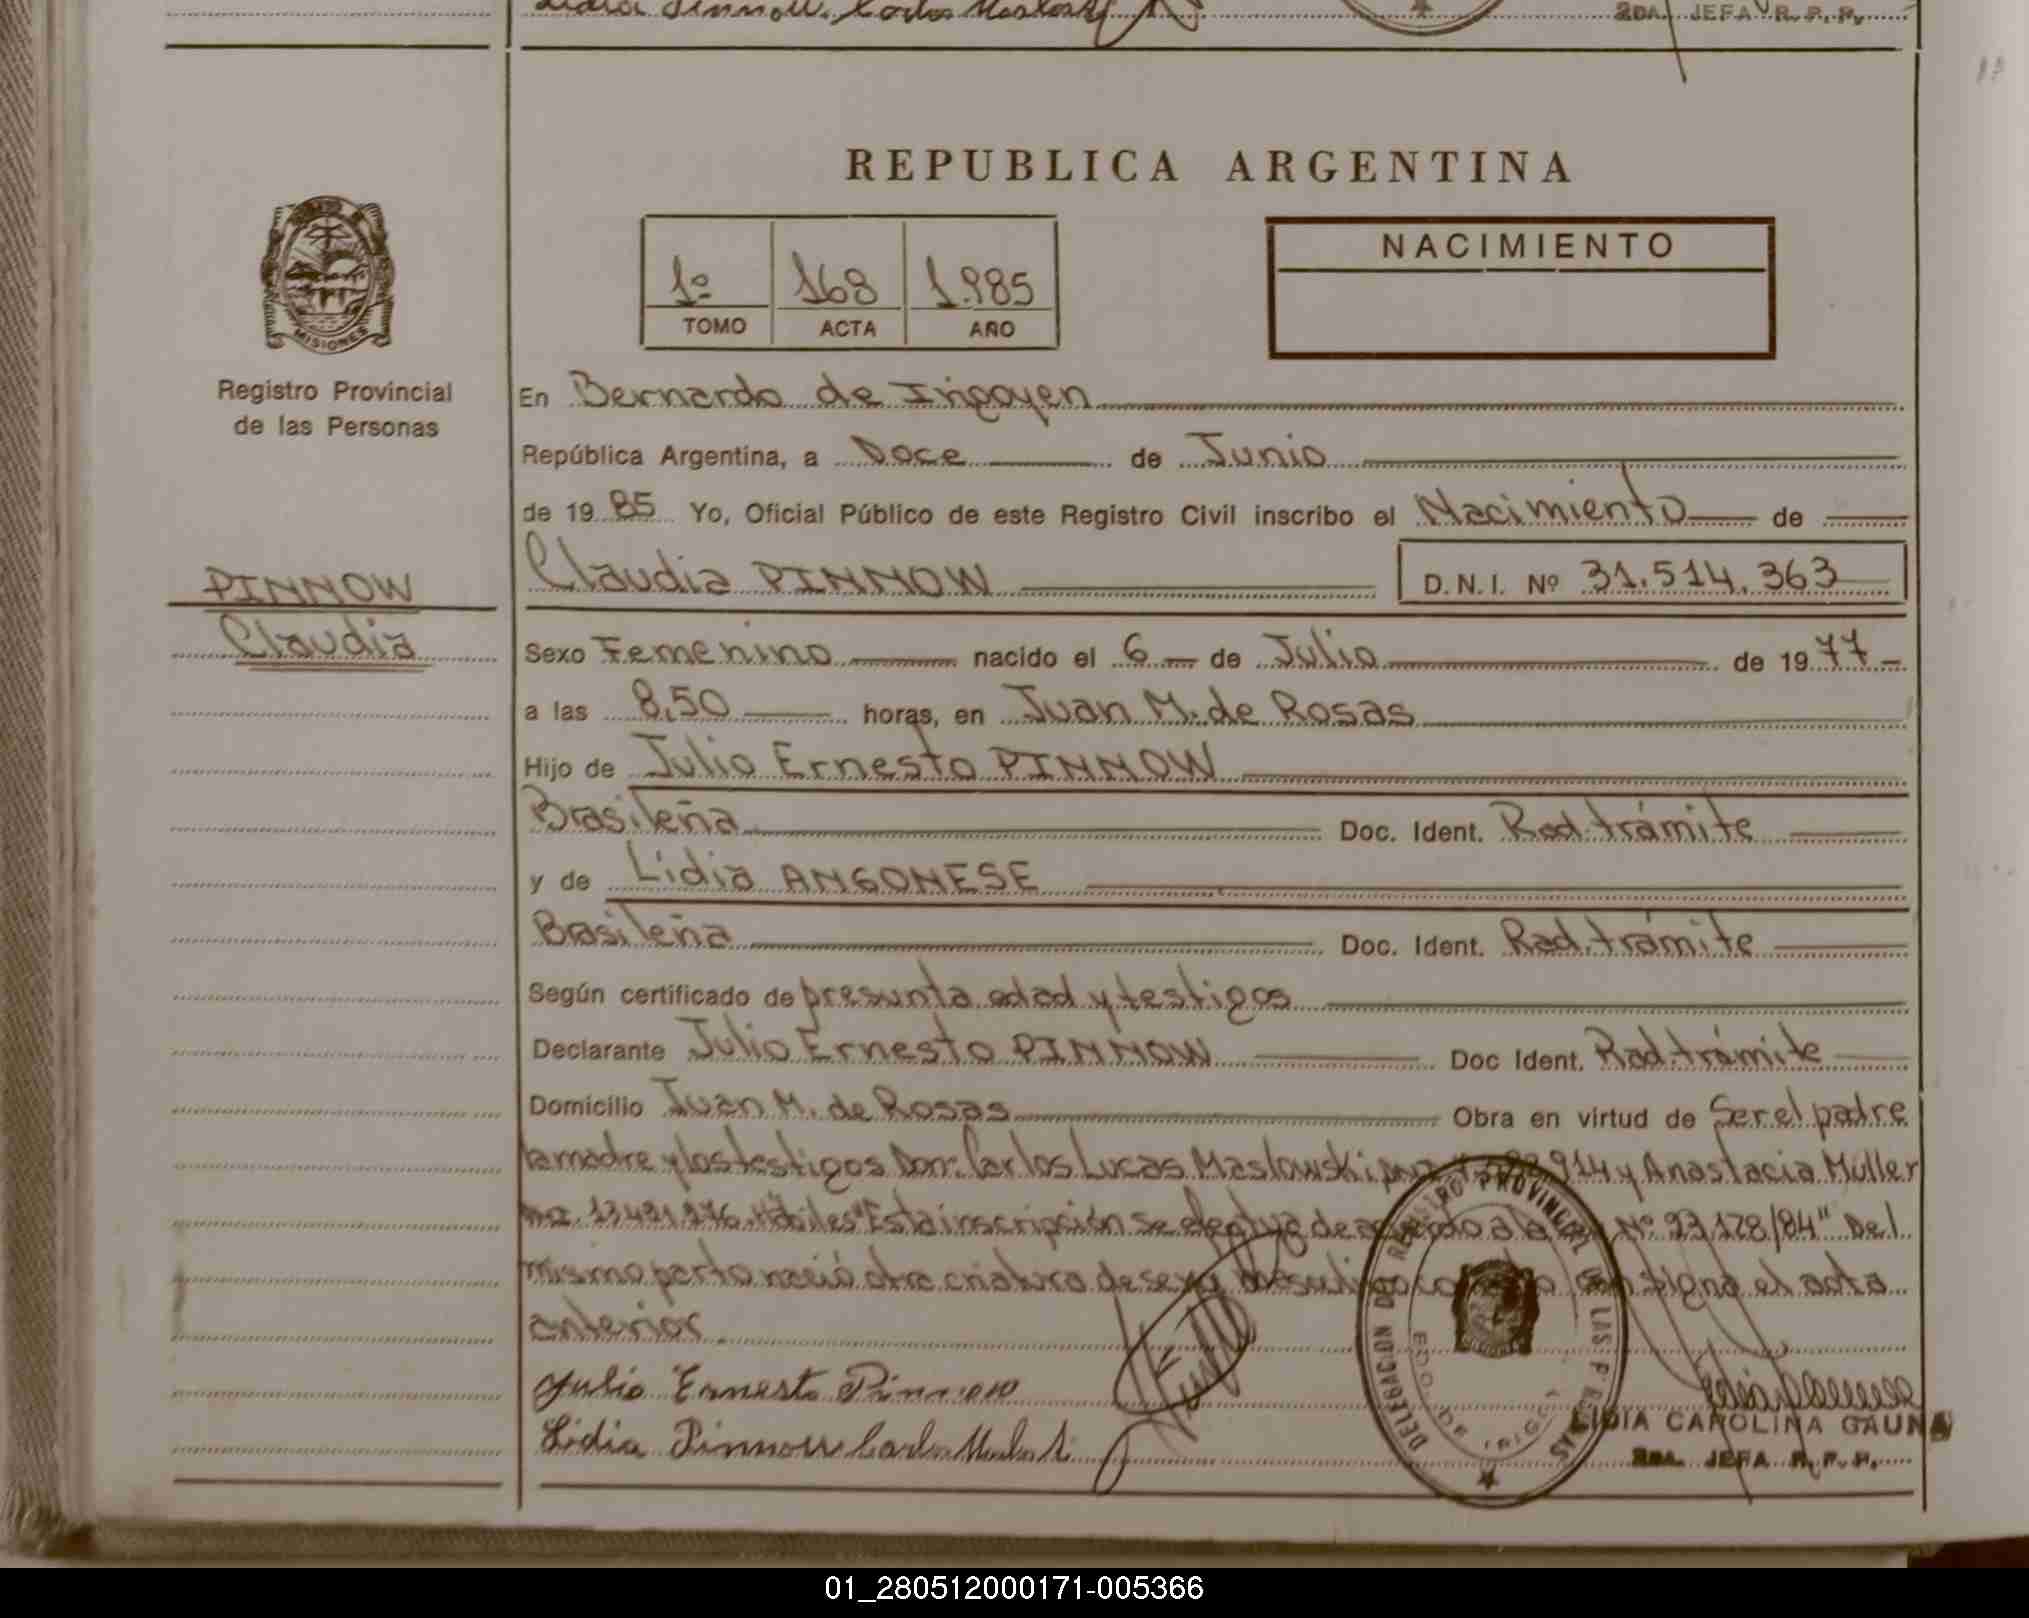 Lidia Pinnow. Carlos
2DA. JEFA R. P. P.
REPUBLICA ARGENTINA
MISIONES
Registro Provincial
de las Personas
1º 168 1.985
TOMO ACTA AÑO
NACIMIENTO
En Bernardo de Irigoyen
República Argentina, a Doce de Junio
de 1985 Yo, Oficial Público de este Registro Civil inscribo el Nacimiento de
PINNOW
Claudia
Claudia PINNOW D.N.I. Nº 31.514.363
Sexo Femenino nacido el 6 de Julio de 1977
a las 8,50 horas, en Juan M. de Rosas
Hijo de Julio Ernesto PINNOW
Brasileña Doc. Ident. Rad. trámite
y de Lidia ANGONESE
Brasileña Doc. Ident. Rad. trámite
Según certificado de presunta edad y testigos
Declarante Julio Ernesto PINNOW Doc Ident. Rad. trámite
Domicilio Juan M. de Rosas Obra en virtud de Ser el padre
la madre y los testigos Don: Carlos Lucas Maslowski 914 y Anastacia Muller
Hábiles "Esta inscripción se efectya de acuerdo a la Nº 23.128/84" Del
mismo parto nació otra criatura de sexo masculino como lo consigna el acta
anterior
Julio Ernesto Pinnow
Lidia Pinnow Carlos
DELEGACION DEL REGISTRO PROVINCIAL DE LAS PERSONAS
BDO. DE IRIGOYEN
LIDIA CAROLINA GAUNA
2DA. JEFA R. P. P.
01_280512000171-005366